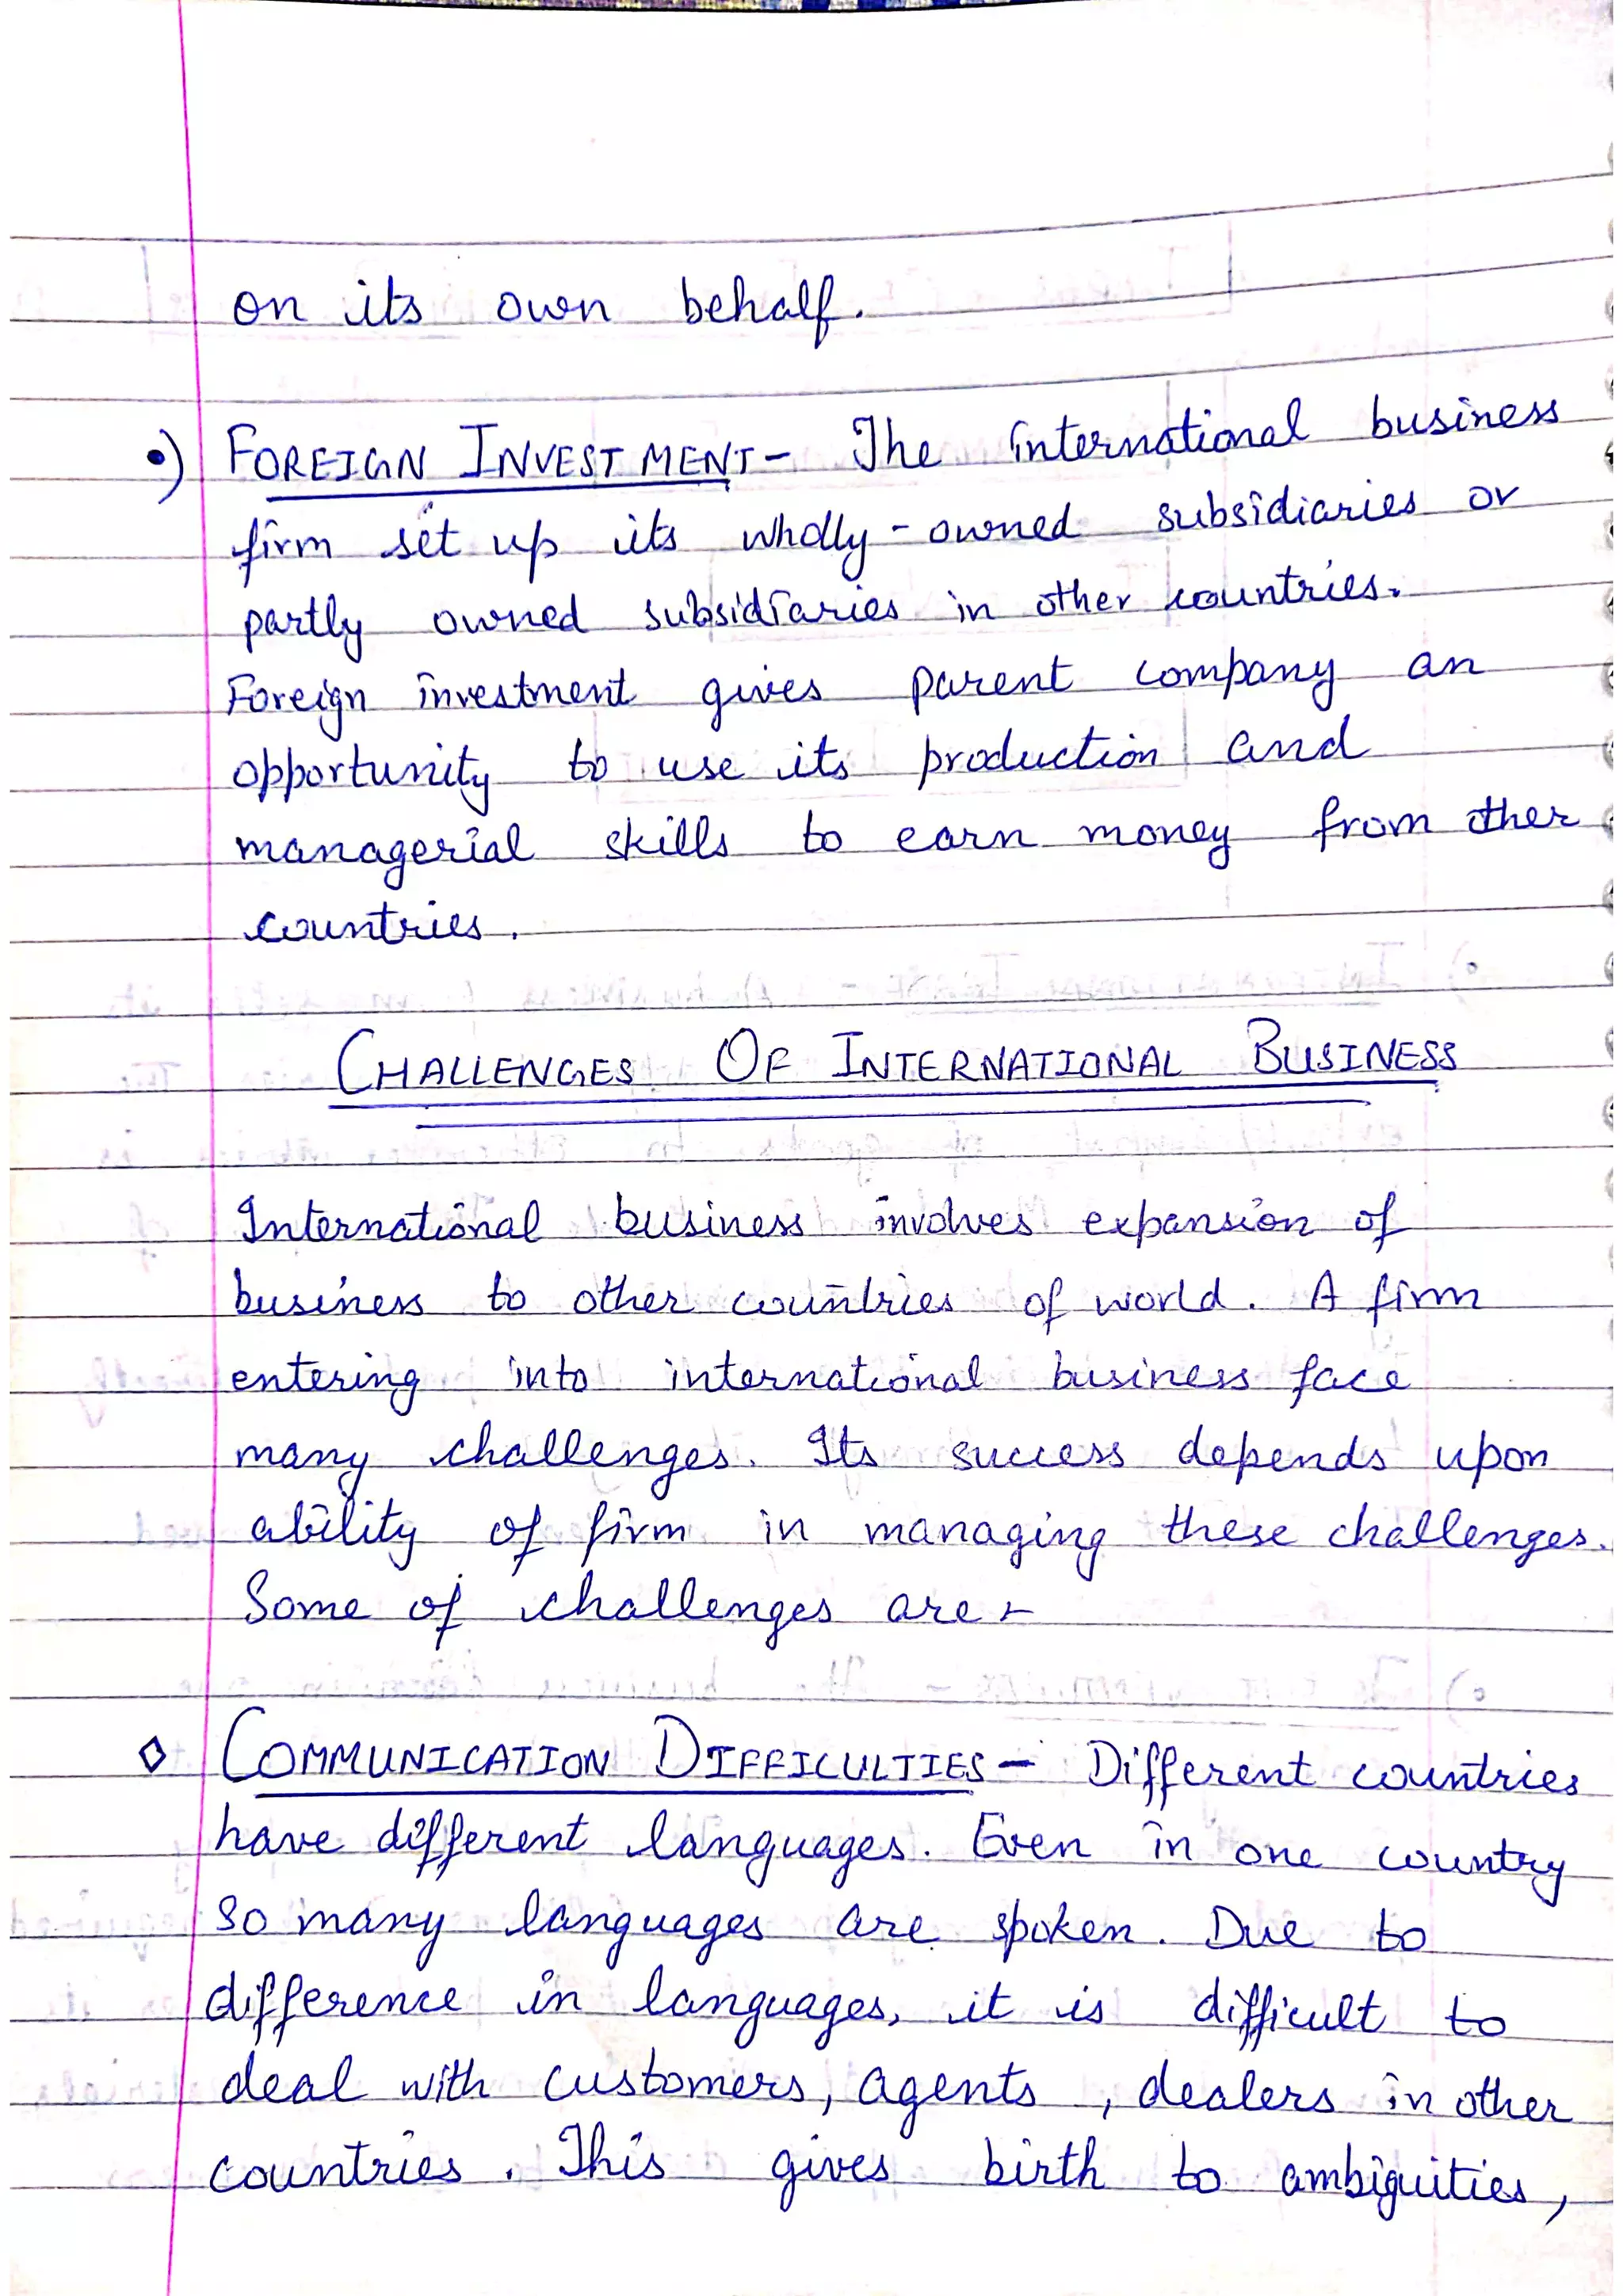 on its own behalf.
•) FOREIGN INVESTMENT - The international business
firm set up its wholly - owned subsidiaries or
partly owned subsidiaries in other countries.
Foreign investment gives parent company an
opportunity to use its production and
managerial skills to earn money from other
countries.
CHALLENGES OF INTERNATIONAL BUSINESS
International business involves expansion of
business to other countries of world. A firm
entering into international business face
many challenges. Its success depends upon
ability of firm in managing these challenges.
Some of challenges are -
◊ COMMUNICATION DIFFICULTIES - Different countries
have different languages. Even in one country
so many languages are spoken. Due to
difference in languages, it is difficult to
deal with customers, agents, dealers in other
countries. This gives birth to ambiguities,